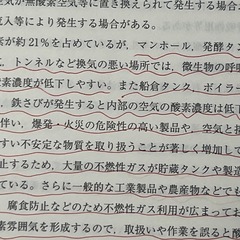 空気が無酸素空気等に置き換えられて発生する場
流入等により発生する場合がある。
素が約21％を占めているが，マンホール，発酵タ
，トンネルなど換気の悪い場所では，微生物の呼
酸素濃度が低下しやすい。また船倉タンク，ボイラー
，鉄さびが発生すると内部の空気の酸素濃度は低
に伴い，爆発・火災の危険性の高い製品や，空気と
しやすい不安定な物質を取り扱うことが著しく増加して
止するため，大量の不燃性ガスが貯蔵タンクや製造
ている。さらに一般的な工業製品や農産物などでも
，腐食防止などのため不燃性ガス利用が広まってお
素雰囲気を形成するので，取扱いや作業を誤ると酸